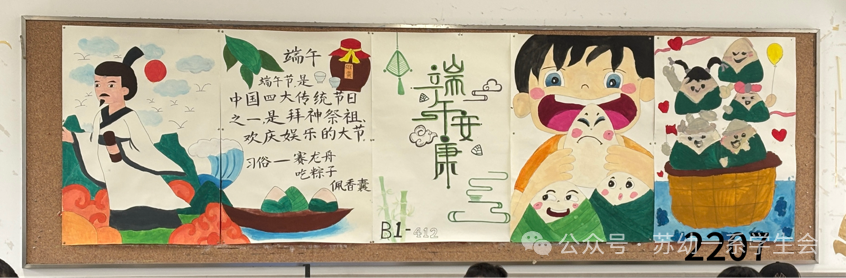 端午
端午节是
中国四大传统节日
之一,是拜神祭祖、
欢庆娱乐的大节
习俗一赛龙舟
吃粽子
佩香囊
端午安康
B1-412
2207
公众号·苏幼一系学生会